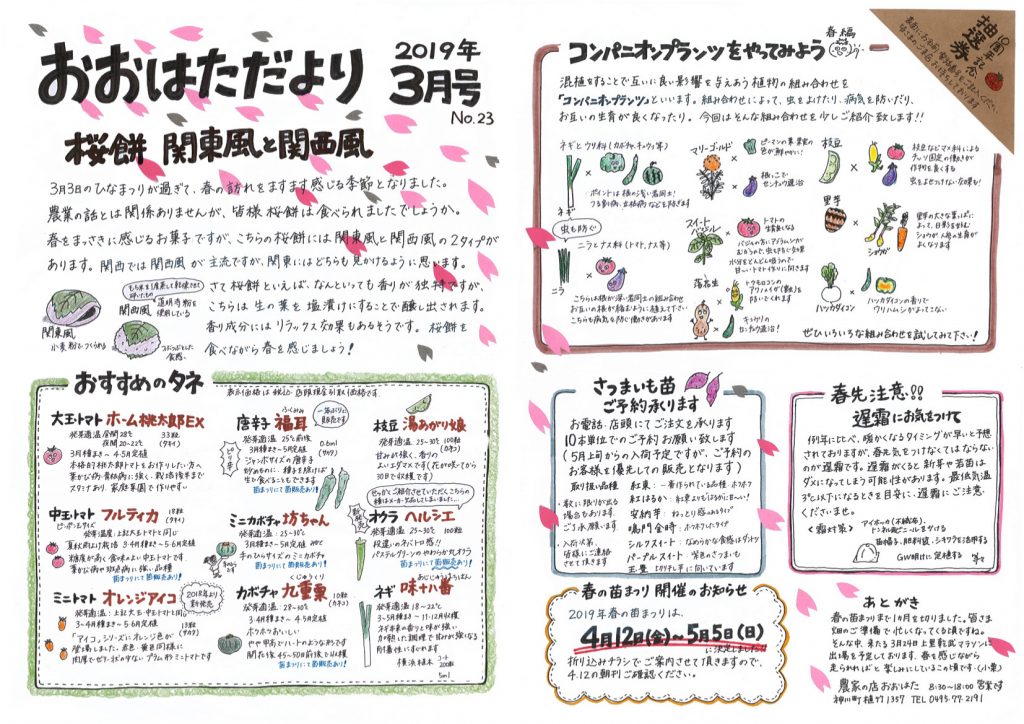 おおはただより
2019年
3月号
No.23
桜餅 関東風と関西風
3月3日のひなまつりが過ぎて、春の訪れをますます感じる季節となりました。
農業の話とは関係ありませんが、皆様桜餅は食べられましたでしょうか。
春をまっさきに感じるお菓子ですが、こちらの桜餅には関東風と関西風の2タイプが
あります。関西では関西風が主流ですが、関東にはどちらも見かけるように思います。
さて桜餅といえば、なんといっても香りが独特ですが、
こちらは生の葉を塩漬けにすることで醸し出されます。
香り成分にはリラックス効果もあるそうです。桜餅を
食べながら春を感じましょう!
関西風
道明寺粉を
使用している
関東風
小麦粉でつくられる
つぶつぶとした
食感
おすすめのタネ
表示価格は税込・店頭現金引取価格です。
大玉トマト ホーム桃太郎EX
発芽適温 昼間28℃
夜間20~22℃
33粒
(タキイ)
3月種まき~4・5月定植
本格的な桃太郎トマトをお作りしたい方へ
葉かび病・青枯病に強く、栽培後半まで
スタミナあり、家庭菜園で作りやすい
中玉トマト フルティカ
ピンポン玉サイズ
18粒
(タキイ)
発芽適温:上記大玉トマトと同じ
夏秋雨よけ栽培 3・4月種まき~5・6月定植
糖度が高く食味のよい中玉トマトです
葉かび病や斑点病に強い品種
苗まつりにて苗販売あり!
ミニトマト オレンジアイコ
2018年より
新発売
発芽適温:上記大玉・中玉トマトと同じ
3~4月種まき~5・6月定植
13粒
(サカタ)
「アイコ」シリーズにオレンジ色が
登場しました。赤色・黄色同様に
肉厚でゼリーが少ない プラム形ミニトマトです
唐辛子 福耳
ふくみみ
ピリ辛
発芽適温 25℃前後
3月種まき~5月定植
0.6ml
ジャンボサイズの唐辛子
炒めものに、種を除けば
生でも食べることもできます
苗まつりにて苗販売あり!
ミニカボチャ 坊ちゃん
発芽適温:25~30℃
3月種まき~5月定植
手のひらサイズのミニカボチャ
苗まつりにて苗販売あり!
カボチャ 九重栗
くじゅうくり
発芽適温:28~30℃
10粒
(カネコ)
3月種まき~4・5月定植
ホクホクおいしい
やや甲高でハートのような形です
開花後45~50日前後で収穫
苗まつりにて苗販売あり!
枝豆 湯あがり娘
発芽適温 25~30℃ 100粒
(カネコ)
甘みが強く、香りの
よいエダマメです
オクラ ヘルシエ
段違いのネバトロ感!!
パステルグリーンのやわらか丸オクラ
苗まつりにて苗販売あり!
ネギ 味十八番
あじじゅうはちばん
発芽適温 18~22℃
3~5月種まき~11・12月収穫
ネギ本来の香りと味が強い
加熱した調理で甘みが強くなる
耐暑性にすぐれます
横浜植木
コート
200粒
5ml
コンパニオンプランツをやってみよう
春編
混植をすることで互いに良い影響を与えあう植物の組み合わせを
「コンパニオンプランツ」といいます。組み合わせによって、虫をよけたり、病気を防いだり、
お互いの生育が良くなったり。今回はそんな組み合わせを少しご紹介致します!!
ネギとウリ科(カボチャ、キュウリ等)
ネギ
ポイントは根の浅い者同士!
つる割病、立枯病などを防ぎます
虫も防ぐ
ニラとナス科(トマト、ナス等)
ニラ
こちらは根が深い者同士の組み合わせ
お互いの根が絡むように植えて下さい
こちらも病気を防ぐ働きがあります
マリーゴールド
ピーマンの葉・果実の
色が鮮やかに!
根っこで
センチュウ退治
スイートバジル
トマトの
生育良くなる
水分をどんどん吸うので
甘~いトマト作りに向きます
落花生
トウモロコシの
アワノメイガ(害虫)を
防いでくれます
キュウリの
センチュウ退治!
枝豆
枝豆などマメ科による
チッソ固定の働きが
作物を良くする
虫をよせつけない効果も!
里芋
里芋の大きな葉っぱに
よって、日影を好む
ショウガ、人参の生育が
よくなります
ショウガ
ハツカダイコン
ハツカダイコンの香りで
ウリハムシがよってこない
ぜひいろいろな組み合わせを試してみて下さい!
抽選券
さつまいも苗
ご予約承ります
お電話・店頭にてご注文を承ります
10本単位でのご予約お願い致します
(5月上旬からの入荷予定ですが、ご予約の
お客様を優先しての販売となります)
取り扱い品種
・数に限りが出る
場合もあります、
ご了承願います
・入荷次第、
皆様にご連絡
させて頂きます
紅東:一番作られている品種・ホクホク
紅はるか:紅東よりもはるかに甘~い!
安納芋:ねっとり感のあるタイプ
鳴門金時:ホクホクしたタイプ
シルクスイート:なめらかな食感はダントツ
パープルスイート:紫色のさつまいも
玉豊:切り干し芋に向いています
春の苗まつり 開催のお知らせ
2019年春の苗まつりは、
4月12日(金)~5月5日(日)
に決定しました!!
折り込みチラシでご案内させて頂きますので、
4.12の朝刊ご確認ください。
春先注意!!
遅霜にお気をつけて
例年に比べ、暖かくなるタイミングが早いと予想
されておりますが、春先気をつけなくてはならない
のが遅霜です。遅霜がくると新芽や若苗は
ダメになってしまう可能性があります。最低気温
3℃以下になるときは目安に、遅霜にご注意
くださいませ。
<霜対策>
アイホッカ(不織布)、
トンネル用ビニールをかける
苗帽子、肥料袋、シキワラを活用する
GW明けに定植する
等々
あとがき
春の苗まつりまで1ヵ月を切りました。皆さま
畑のご準備で忙しくなってくる頃ですね。
そんな中、来たる3月24日上里乾武マラソンに
出場を予定しております。春を感じながら
走られればと楽しみにしているこの頃です。(小栗)
農家の店おおはた 8:30~18:00 営業です
神川町植竹1357 TEL 0495.77.2191